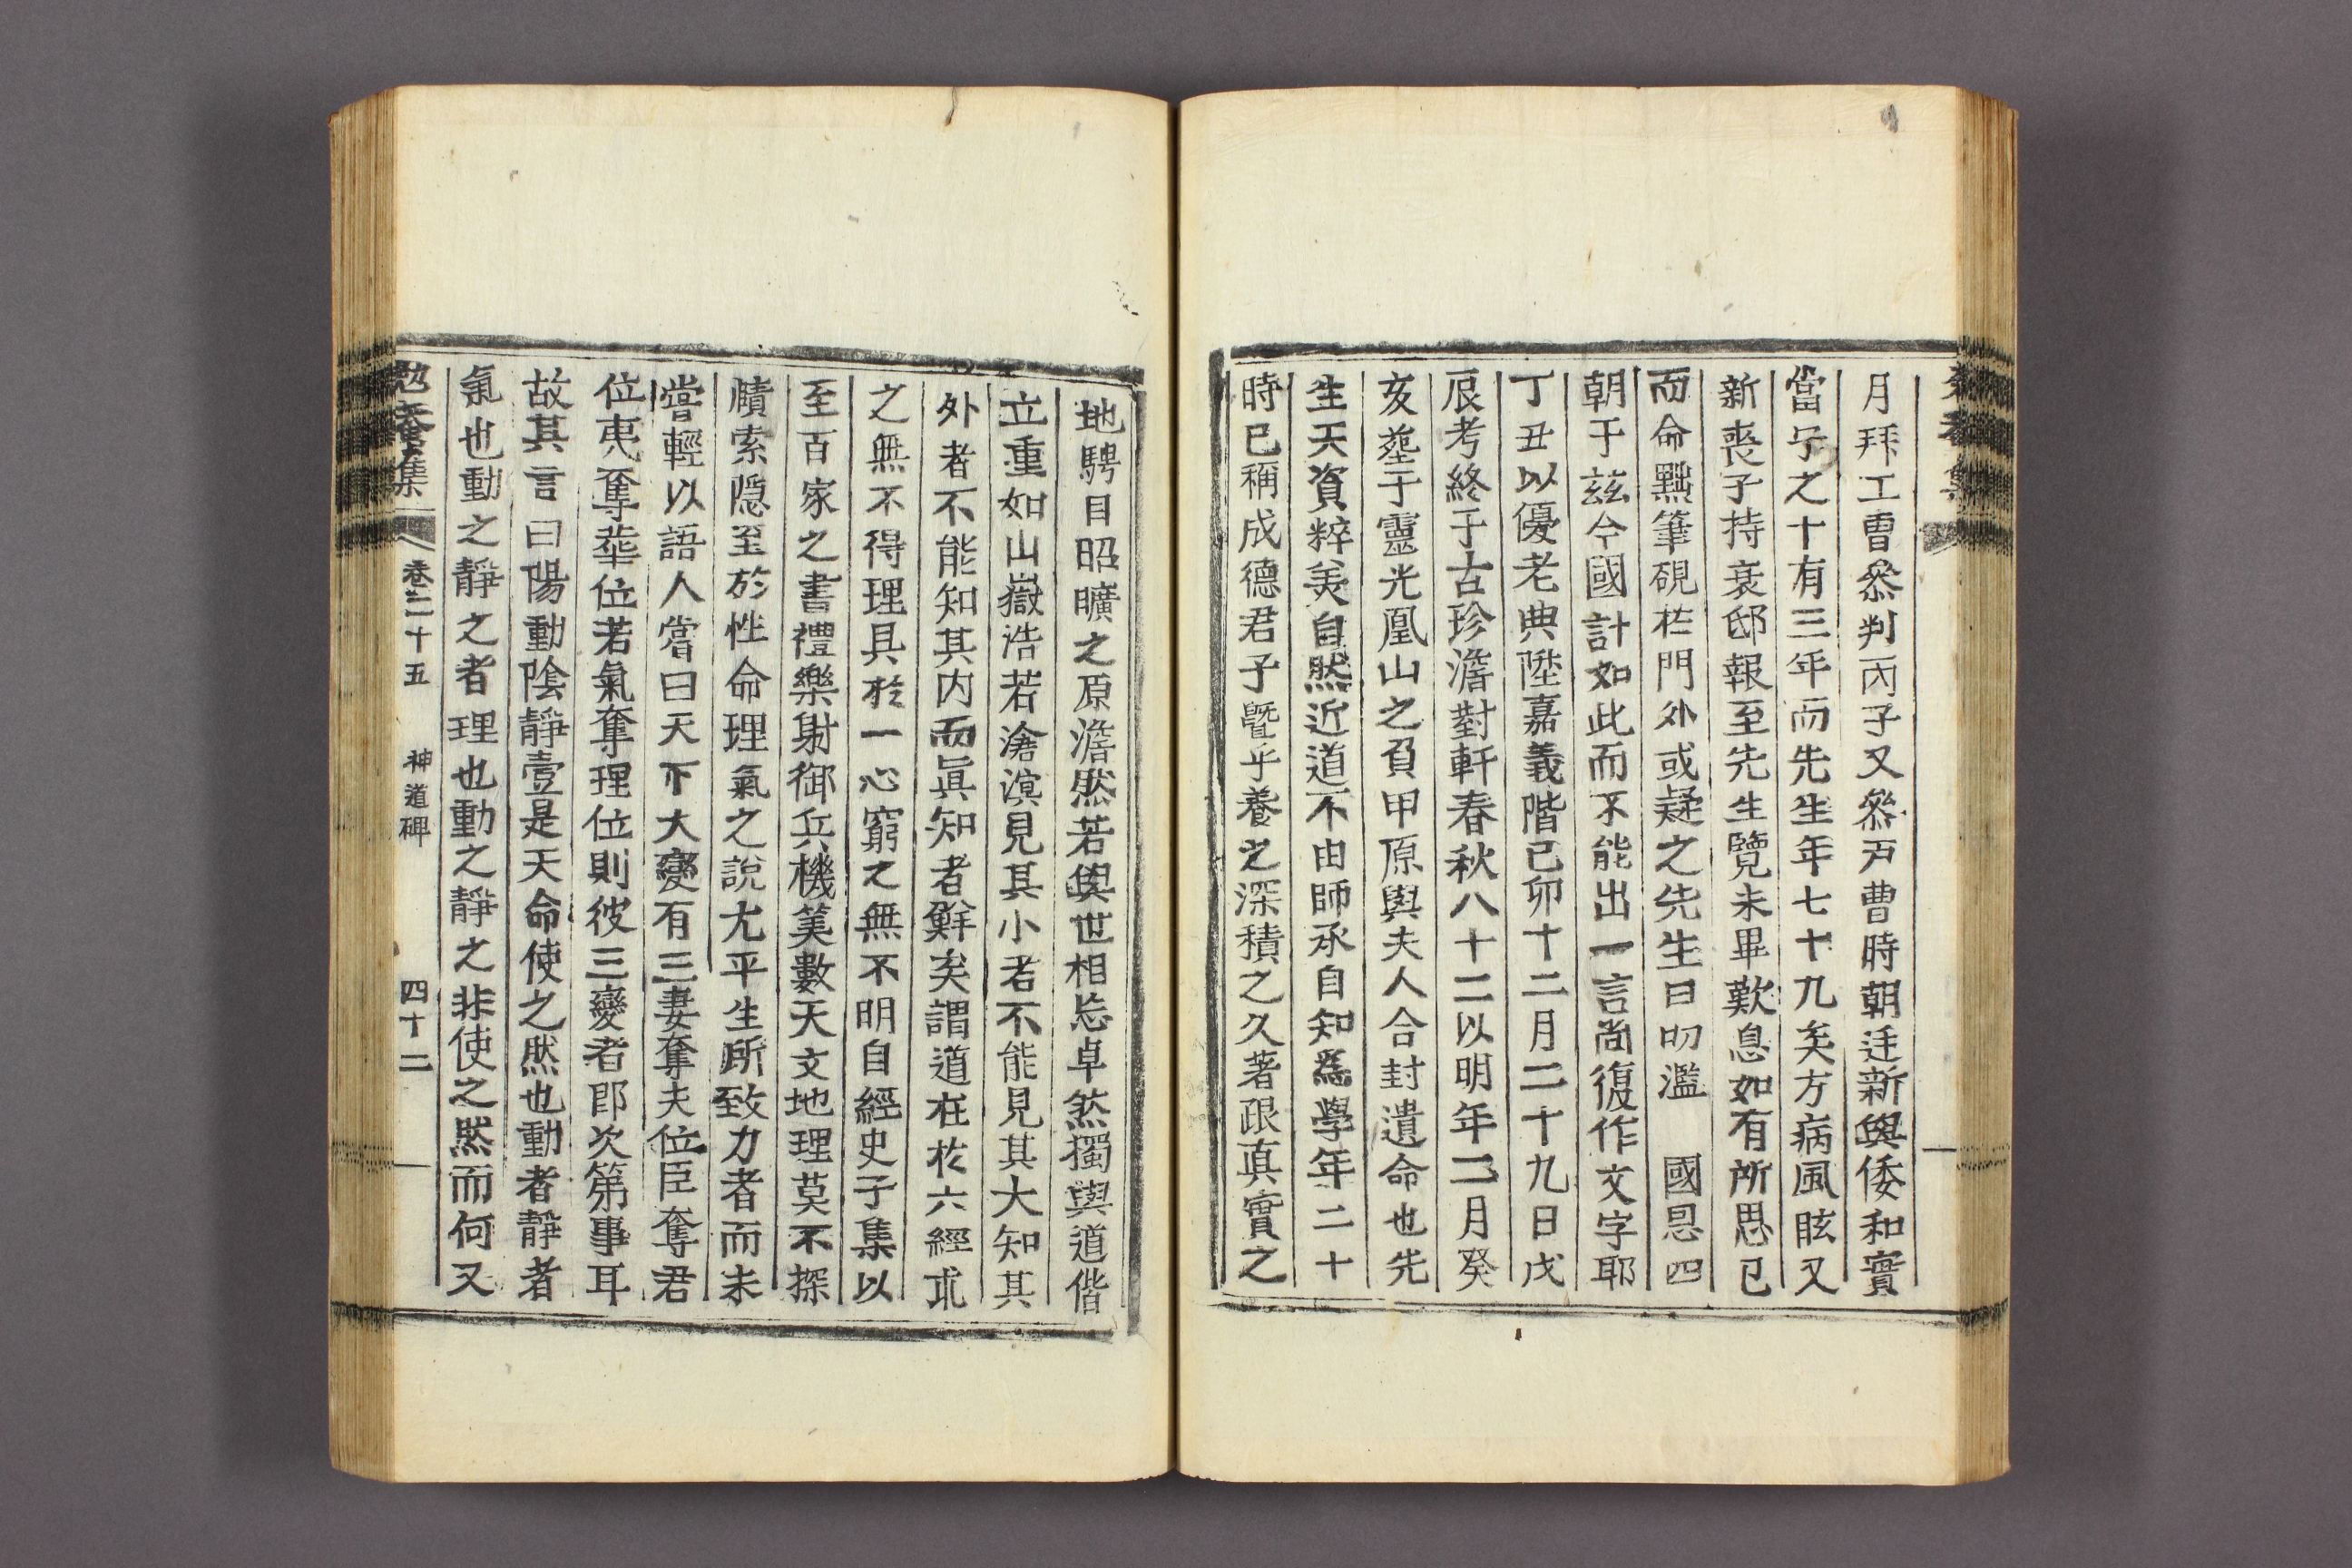 月拜工曹叅判丙子又叅戶曹時朝廷新與倭和實
當予之十有三年而先生年七十九矣方病風眩又
新喪子持衰邸報至先生覽未畢歎息如有所思已
而命點筆硯於門外或疑之先生曰叨濫　國恩四
朝于玆今國計如此而不能出一言尙復作文字耶
丁丑以優老典陞嘉義階己卯十二月二十九日戊
辰考終于古珍澹對軒春秋八十二以明年二月癸
亥塟于靈光凰山之負甲原與夫人合封遺命也先
生天資粹美自然近道不由師承自知爲學年二十
時已稱成德君子曁乎養之深積之久著跟真實之
地騁目昭曠之原澹然若與世相忘卓然獨與道偕
立重如山嶽浩若滄溟見其小者不能見其大知其
外者不能知其內而眞知者鮮矣謂道在於六經求
之無不得理具於一心窮之無不明自經史子集以
至百家之書禮樂射御兵機筭數天文地理莫不探
賾索隱至於性命理氣之說尤平生所致力者而未
嘗輕以語人嘗曰天下大變有三妻奪夫位臣奪君
位夷奪華位若氣奪理位則彼三變者卽次第事耳
故其言曰陽動陰靜壹是天命使之然也動者靜者
氣也動之靜之者理也動之靜之非使之然而何又
勉菴集　卷二十五　神道碑　四十二